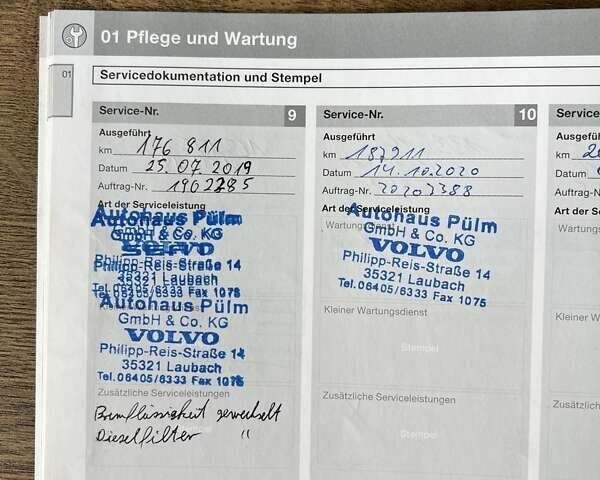 01 Pflege und Wartung
01
Servicedokumentation und Stempel
Service-Nr. 9
Ausgeführt
km 176 811
Datum 25.07.2019
Auftrag-Nr. 1902285
Art der Serviceleistung
Autohaus Pülm
GmbH & Co. KG
Philipp-Reis-Straße 14
35321 Laubach
Tel. 06405/6333 Fax 1075
Autohaus Pülm
GmbH & Co. KG
VOLVO
Philipp-Reis-Straße 14
35321 Laubach
Tel. 06405/6333 Fax 1075
Zusätzliche Serviceleistungen
Bremflüssigkeit gewechselt
Dieselfilter "
Service-Nr. 10
Ausgeführt
km 187911
Datum 14.10.2020
Auftrag-Nr. 20203388
Art der Serviceleistung
Autohaus Pülm
GmbH & Co. KG
VOLVO
Philipp-Reis-Straße 14
35321 Laubach
Tel. 06405/6333 Fax 1075
Kleiner Wartungsdienst
Stempel
Zusätzliche Serviceleistungen
Stempel
Service
Ausgefü
km
Datum
Auftrag-N
Art der Se
Wartungs
Kleiner W
Zusätzlic